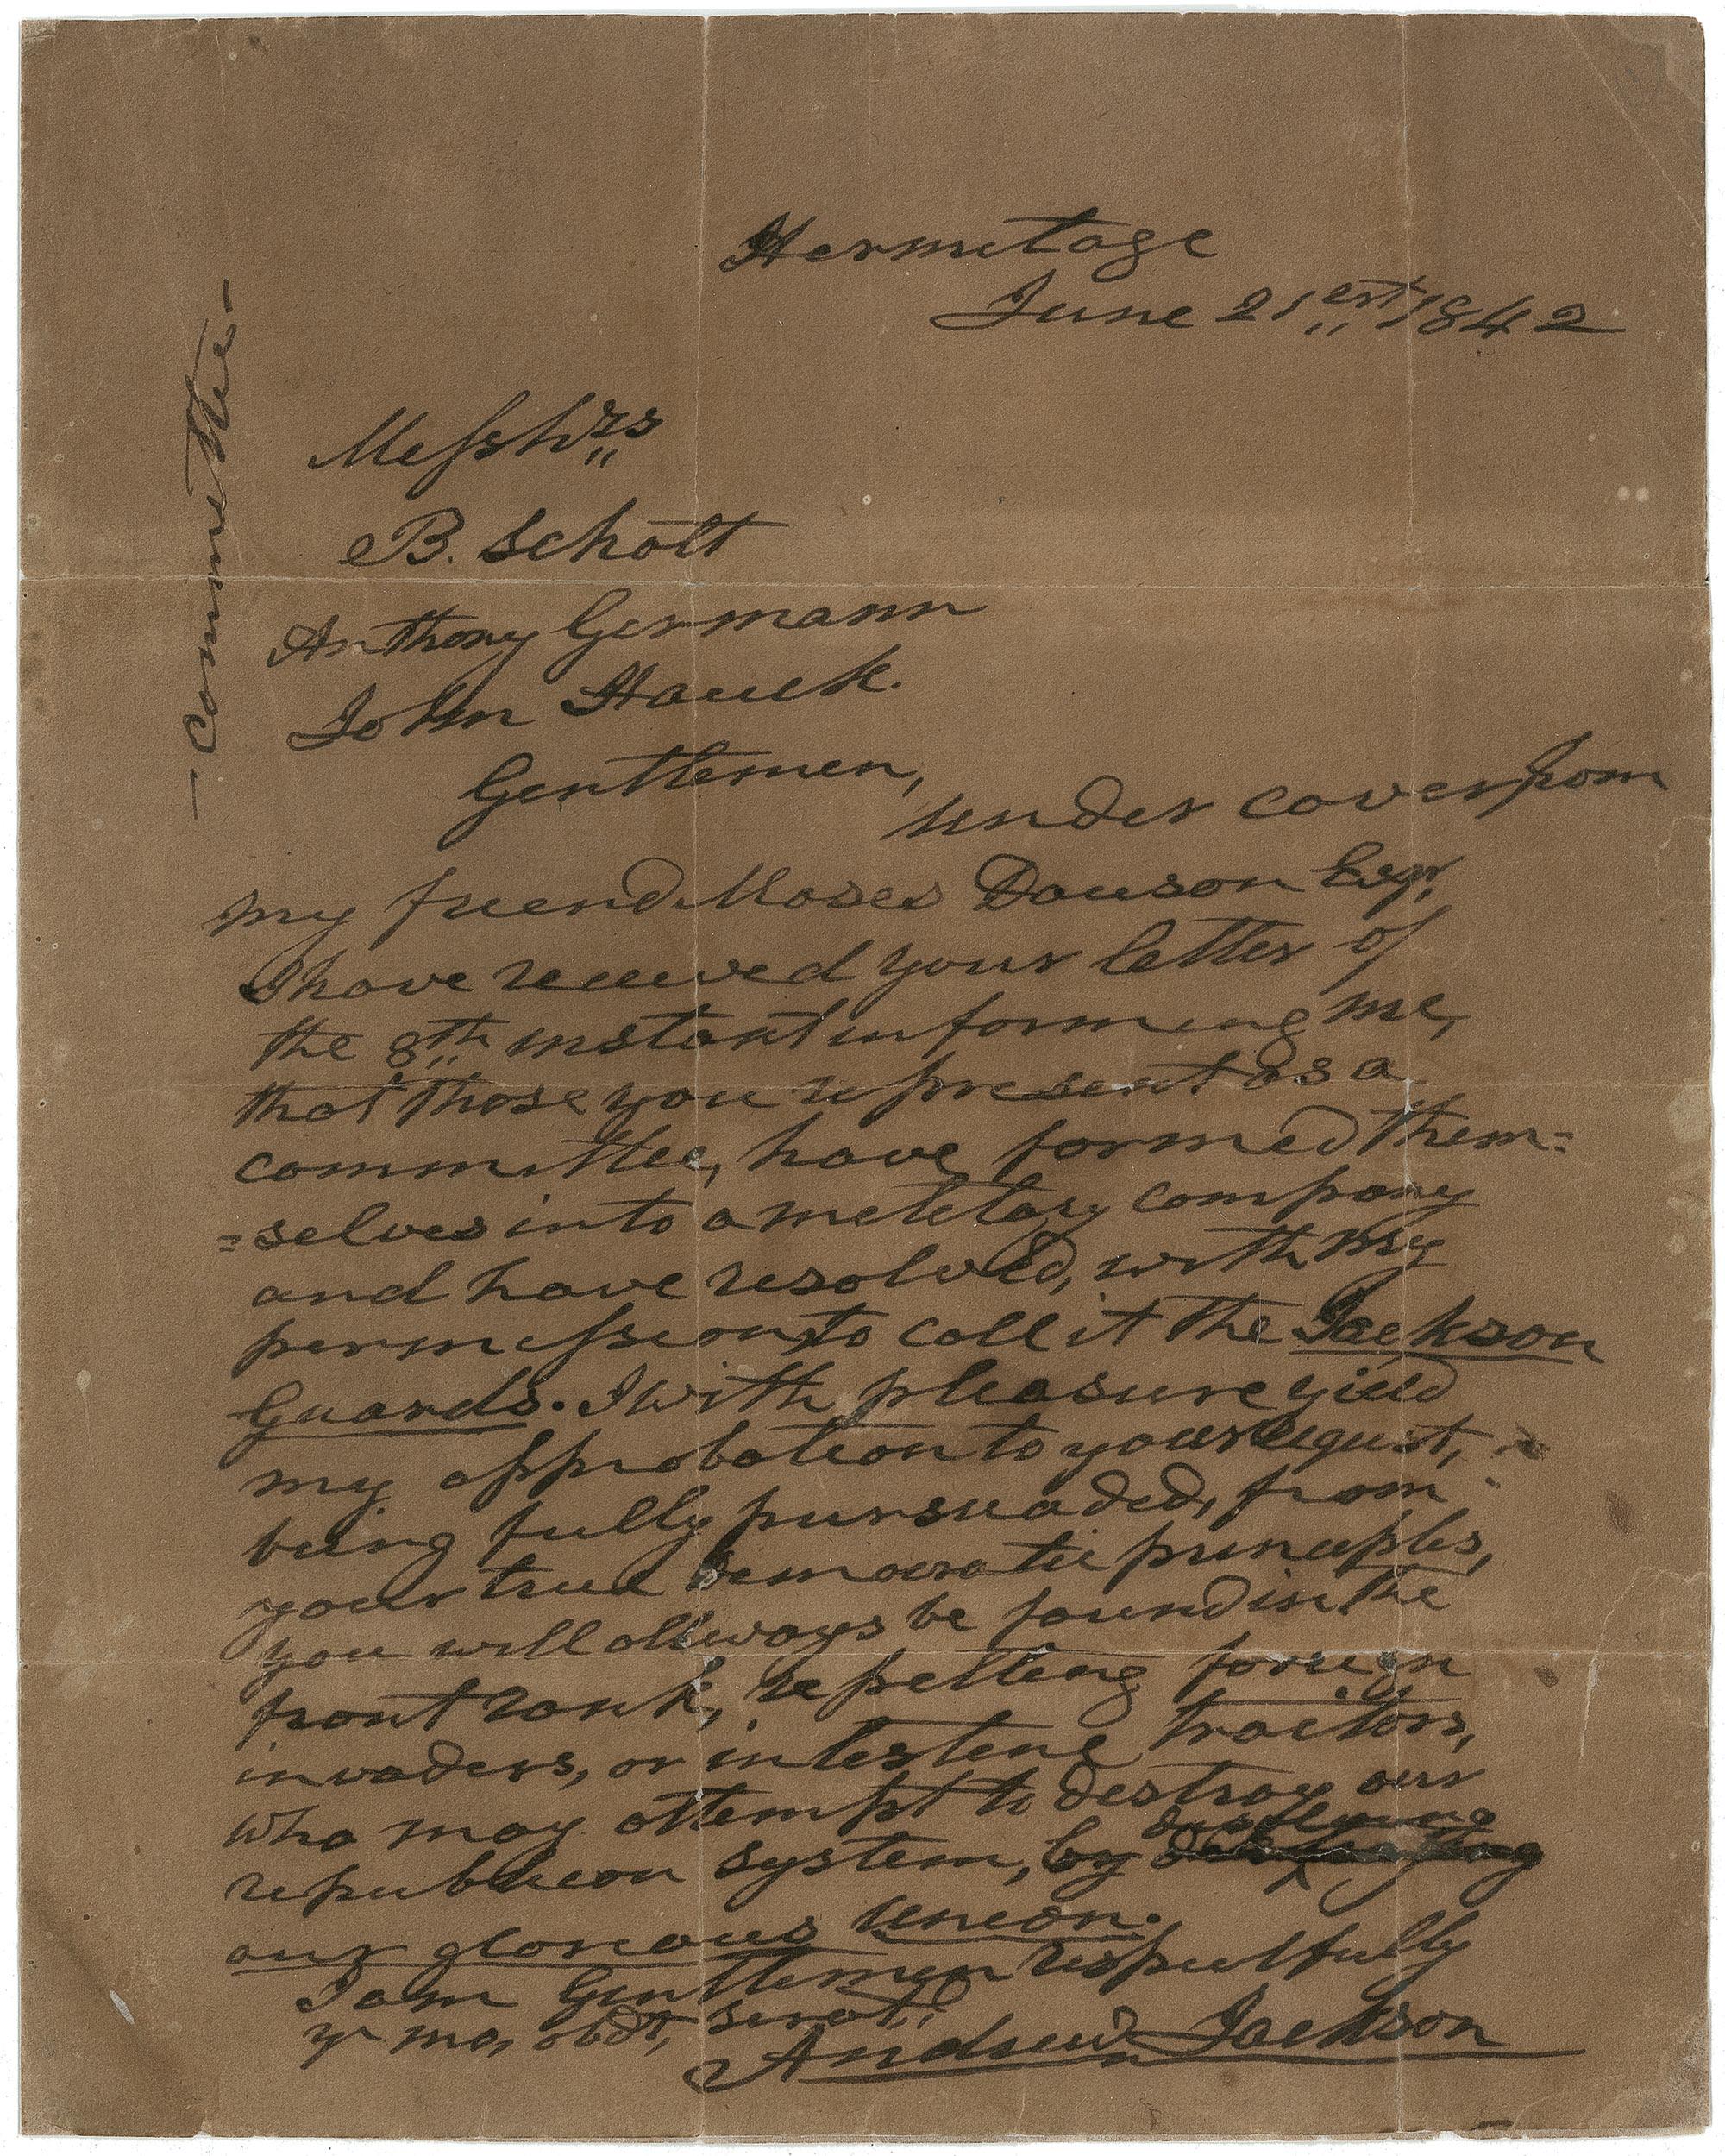 Hermitage
June 21est 1842
- Committee -
Messhrs
B. Schott
Anthony Germann
John Hauck.
Gentlemen,
under cover from
my friend Moses Dawson Esqr,
I have received your letter of
the 8th instant informing me,
that those you represent as a
committee, have formed them=
=selves into a meletary company
and have resolved, with my
permission, to call it the Jackson
Guards. I with pleasure yield
my approbation to your request,
being fully pursuaded, from
your true democratic principles,
you will allways be found in the
front rank, repelling foreign
invaders, or intestene traitors,
who may attempt to destroy our
republican system, by
our glorious Union.
I am Gentlemen respectfully
yr mo, obdt, servt,
Andrew Jackson